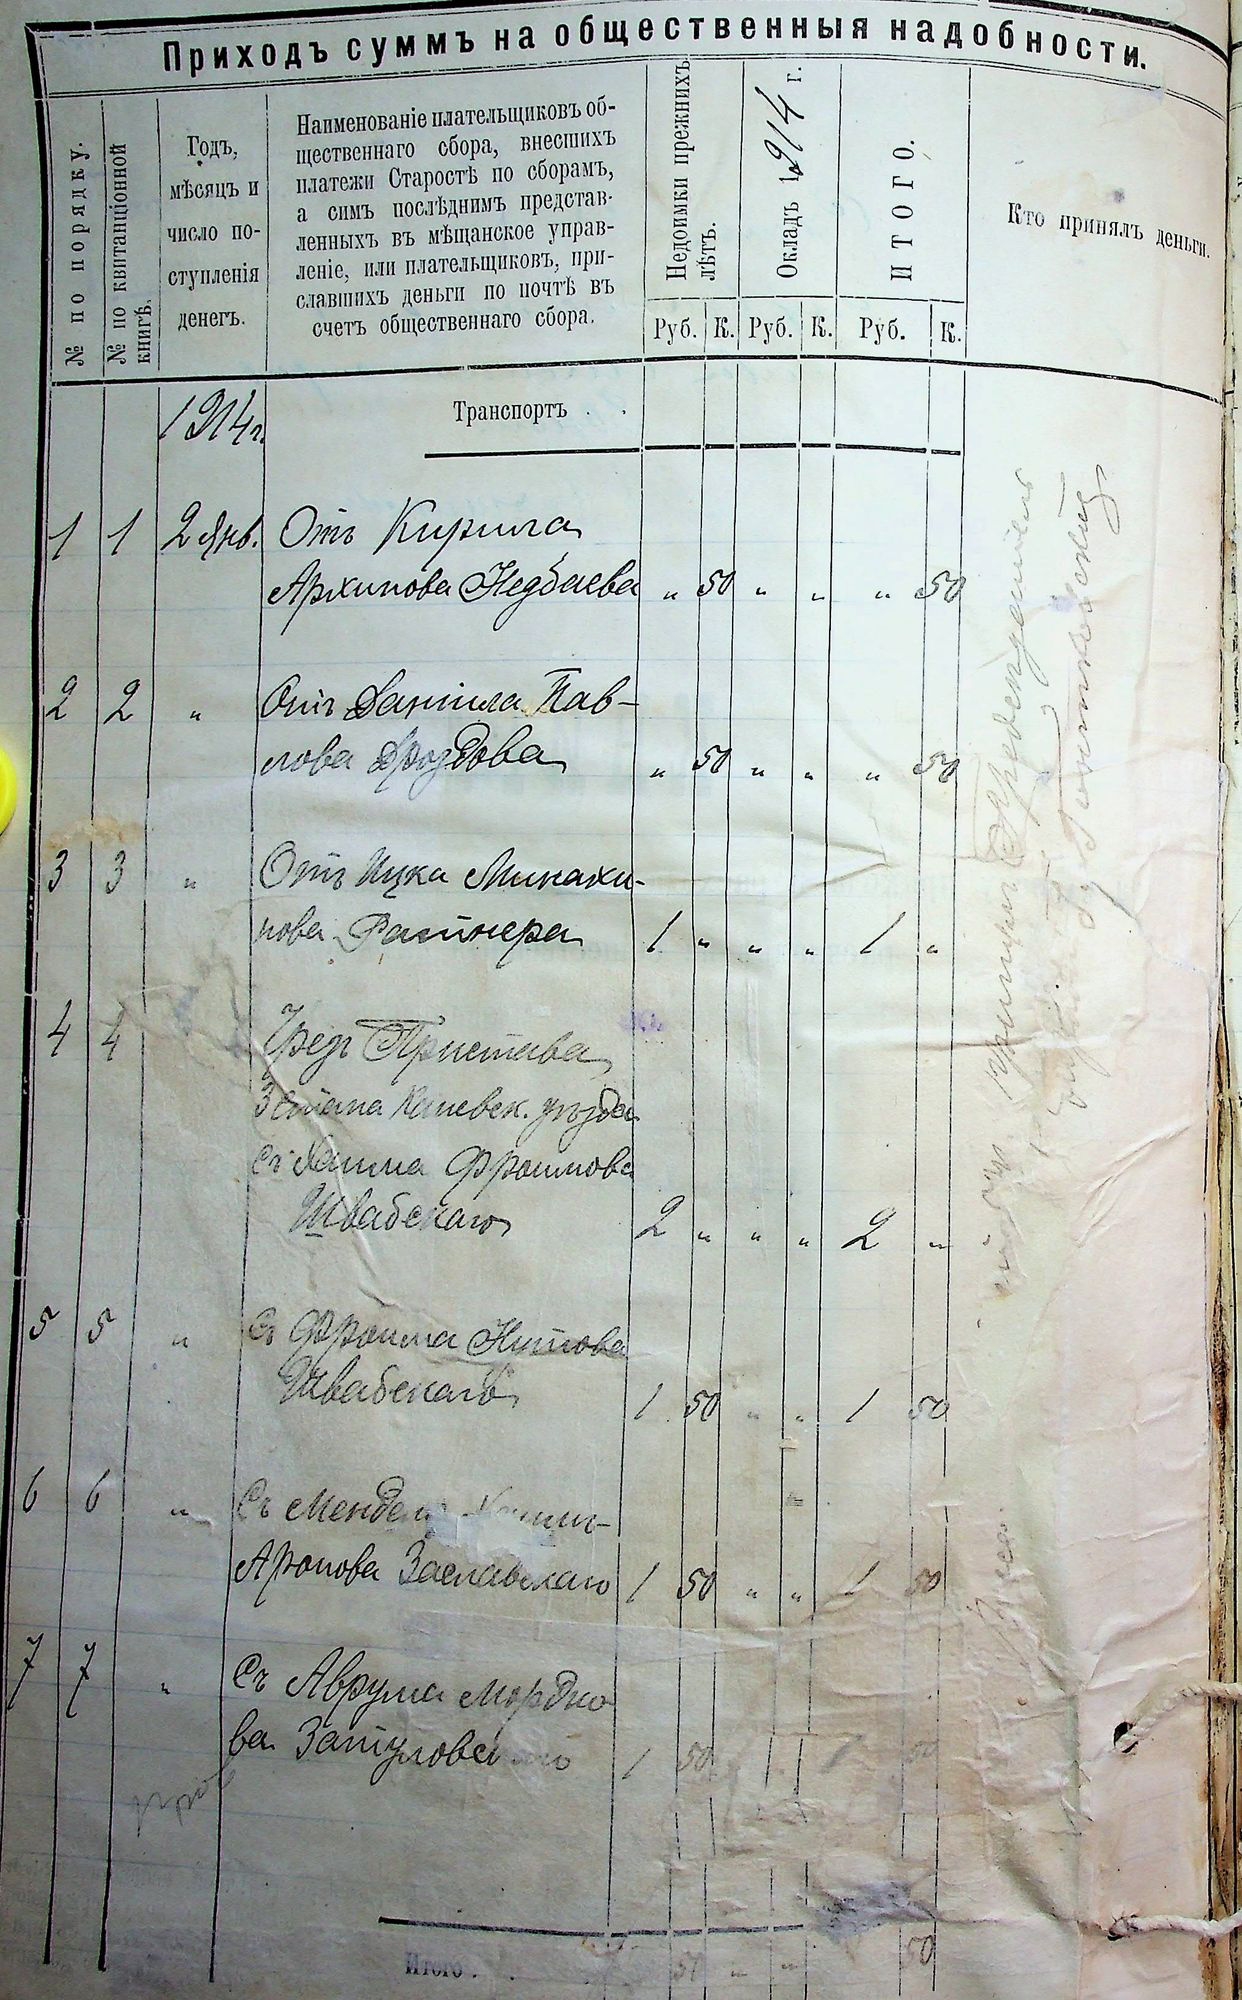 Приходъ суммъ на общественныя надобности.
№ по порядку.
№ по квитанціонной
книгѣ.
Годъ,
мѣсяцъ и
число по-
ступленія
денегъ.
Наименованіе плательщиковъ об-
щественнаго сбора, внесшихъ
платежи Старостѣ по сборамъ,
а симъ послѣднимъ представ-
ленныхъ въ мѣщанское управ-
леніе, или плательщиковъ, при-
славшихъ деньги по почтѣ въ
счетъ общественнаго сбора.
Недоимки прежнихъ
лѣтъ.
Окладъ 1914 г.
ИТОГО.
Кто принялъ деньги.
Руб. К. Руб. К. Руб. К.
1914 г. Транспортъ . .
1 1 2 Янв. Отъ Кирила
Архипова Недбаева „ 50 „ „ „ 50
2 2 „ Отъ Данила Пав-
лова Дроздова „ 50 „ „ „ 50
3 3 „ Отъ Ицка
Ратнера 1 „ „ „ 1 „
4 4 Чрезъ Пристава
3 стана уѣзда
съ Хаима Фроимова
Швабскаго 2 „ „ „ 2 „
5 5 „ Съ Фроима Нутова
Швабскаго 1 50 „ „ 1 50
6 6 „ Съ Менделя
Аронова Заславскаго 1 50 „ „ 1 50
7 7 „ Съ Аврума Мордко-
ва 1 50 50
Итого . 50